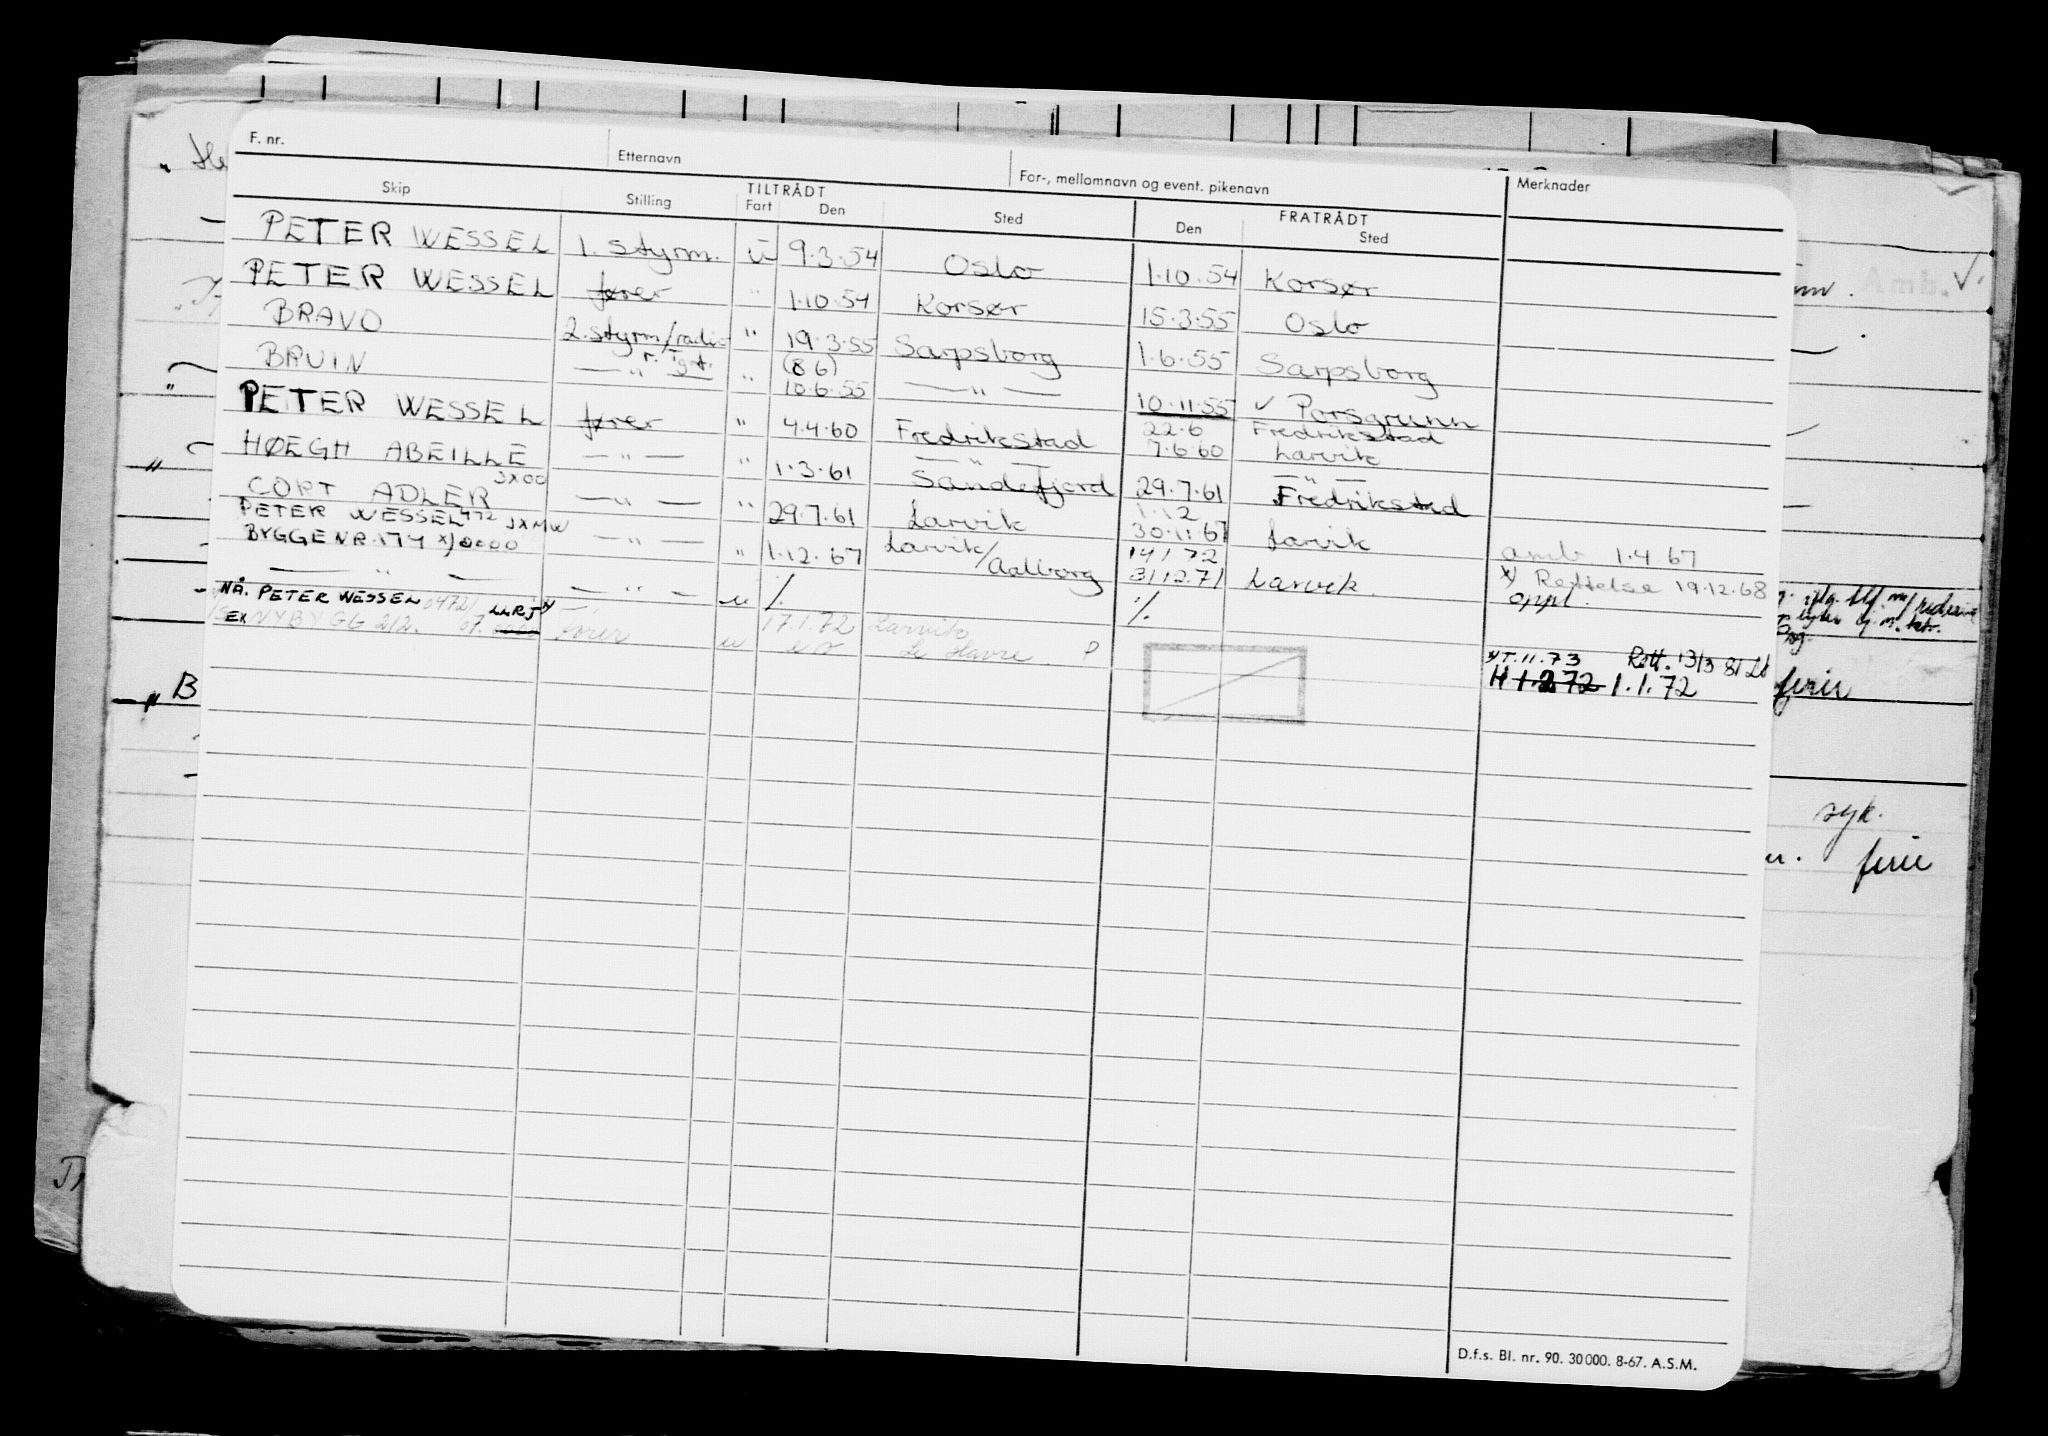 F. nr. Etternavn For-, mellomnavn og event. pikenavn Merknader
Skip Stilling TILTRÅDT FRATRÅDT
Fart Den Sted Den Sted
PETER WESSEL 1. styrm. u 9.3.54 Oslo 1.10.54 Korsør
PETER WESSEL fører " 1.10.54 Korsør 15.3.55 Oslo
BRAVO 2.styrm/radio " 19.3.55 Sarpsborg 1.6.55 Sarpsborg
r. Tgt. (8 6)
BRUIN — " — " 10.6.55 — " — 10.11.55 ✓ Porsgrunn
PETER WESSEL fører " 4.4.60 Fredrikstad 22.6 Fredrikstad
7.6.60 Larvik
HØEGH ABEILLE — " — " 1.3.61 — " — Sandefjord 29.7.61 — " — Fredrikstad
JXOO
CORT ADLER — " — " 29.7.61 Larvik 1.12
30.11.67 Larvik
PETER WESSEL 472 JXMW
BYGGENR. 174 x) 0000 — " — " 1.12.67 Larvik/Aalborg 14 1 72
31 12.71 Larvik
amb 1.4 67
x) Rettelse 19.12.68
— " — — " — u /. /. oppl.
NÅ. PETER WESSEL 0472) LLRJ x)
EX NYBYGG 212. 07. 0000 Fører u 17.1.72 Larvik
Le Havre P
x) T. 11. 73 Rett. 13/3 81
H 1.2 72 1.1.72
Amb. ✓.
" B ferier
syk.
ferie
D.f.s. Bl. nr. 90. 30 000. 8-67. A.S.M.